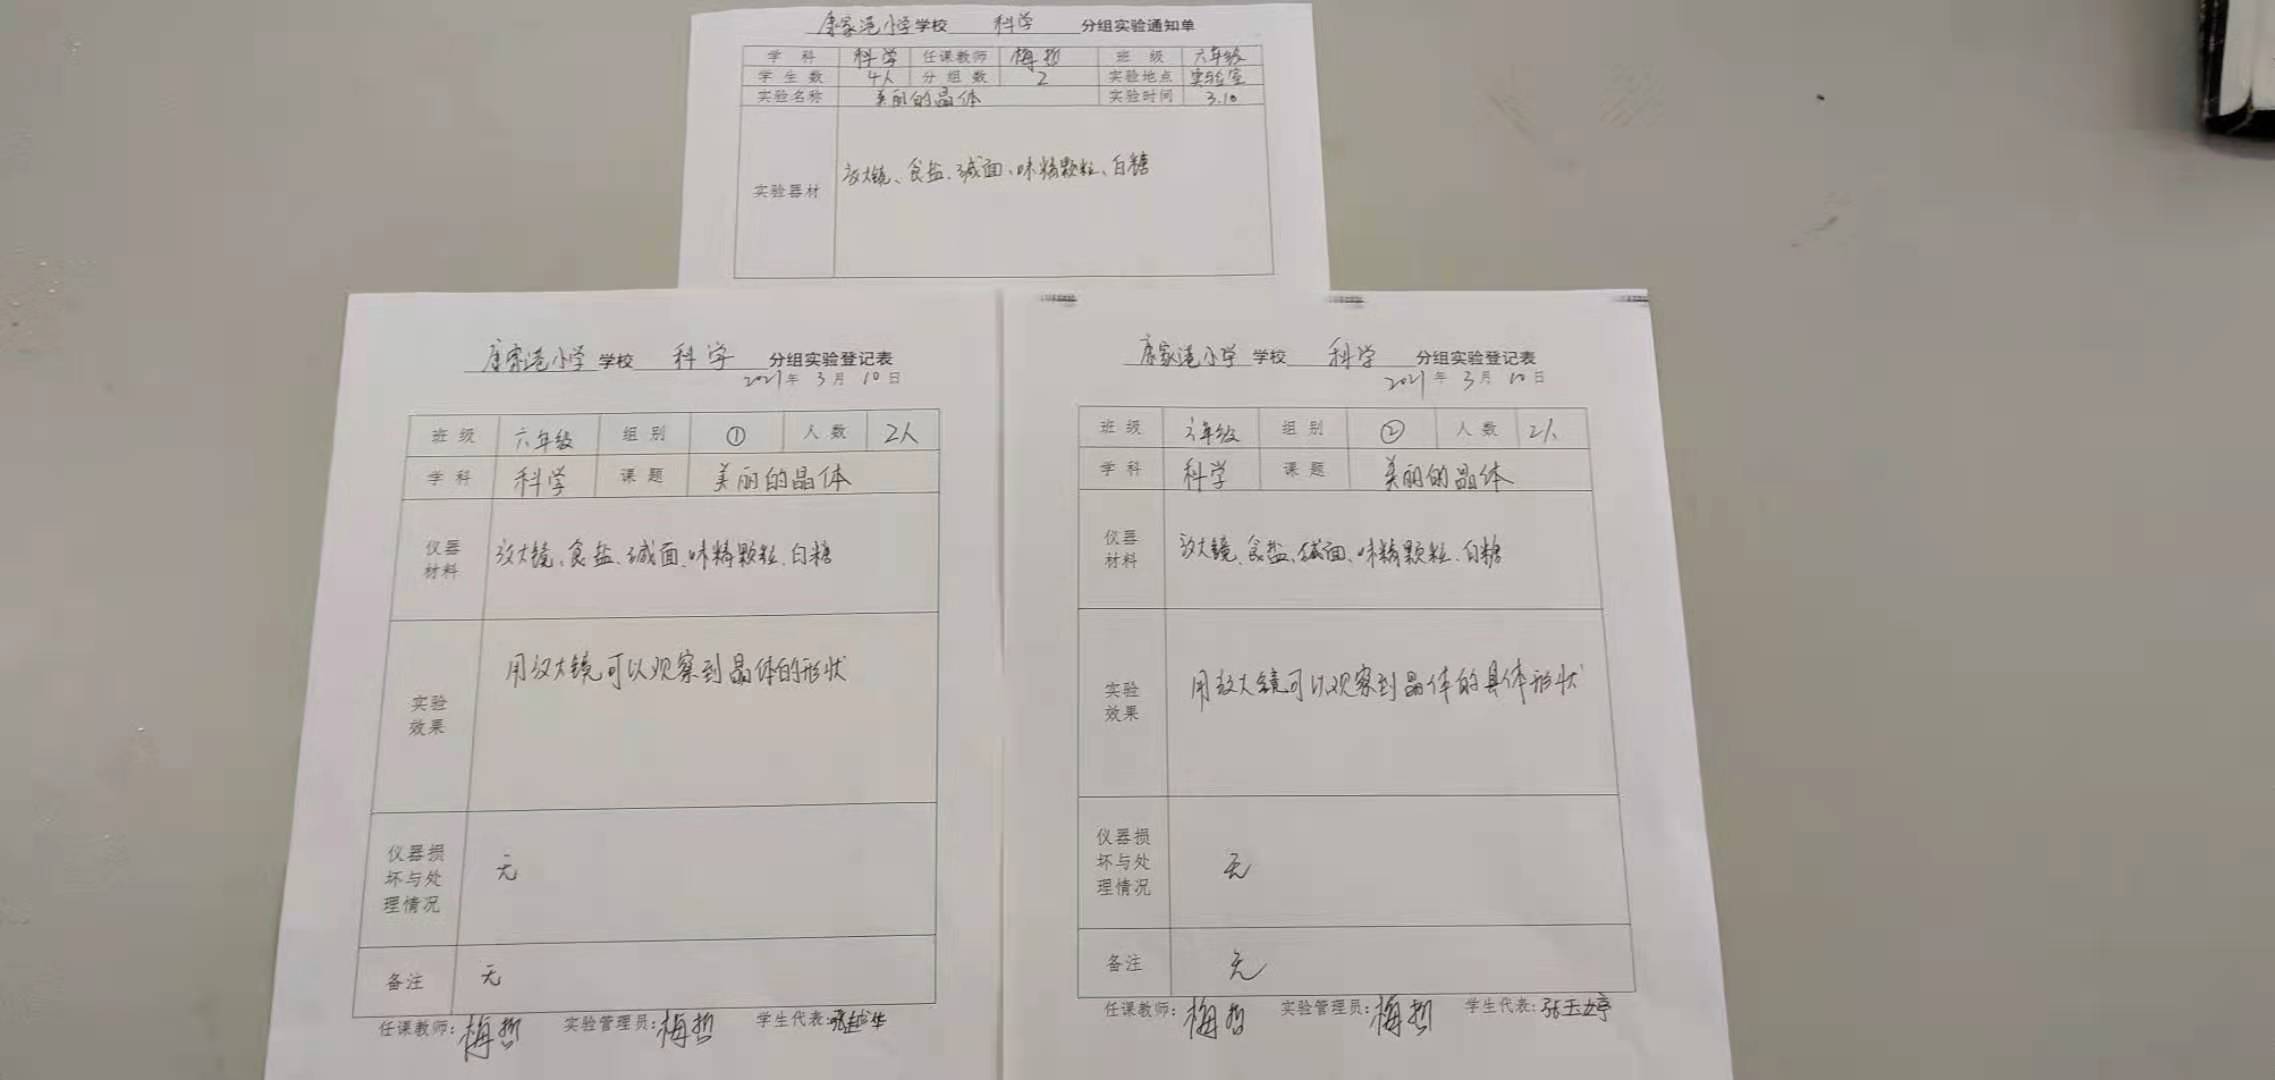 康家港小学学校 科学 分组实验通知单
学 科 科学 任课教师 梅哲 班 级 六年级
学生数 4人 分组数 2 实验地点 实验室
实验名称 美丽的晶体 实验时间 3.10
实验器材 放大镜、食盐、碱面、味精颗粒、白糖
康家港小学 学校 科学 分组实验登记表
2021年 3月 10日
班 级 六年级 组 别 ① 人 数 2人
学 科 科学 课 题 美丽的晶体
仪器
材料
放大镜、食盐、碱面、味精颗粒、白糖
实验
效果
用放大镜可以观察到晶体的形状
仪器损
坏与处
理情况
无
备注 无
任课教师:梅哲 实验管理员:梅哲 学生代表:张越华
康家港小学 学校 科学 分组实验登记表
2021年 3月 10日
班 级 六年级 组 别 ② 人 数 2人
学 科 科学 课 题 美丽的晶体
仪器
材料
放大镜、食盐、碱面、味精颗粒、白糖
实验
效果
用放大镜可以观察到晶体的具体形状
仪器损
坏与处
理情况
无
备注 无
任课教师:梅哲 实验管理员:梅哲 学生代表:张玉婷